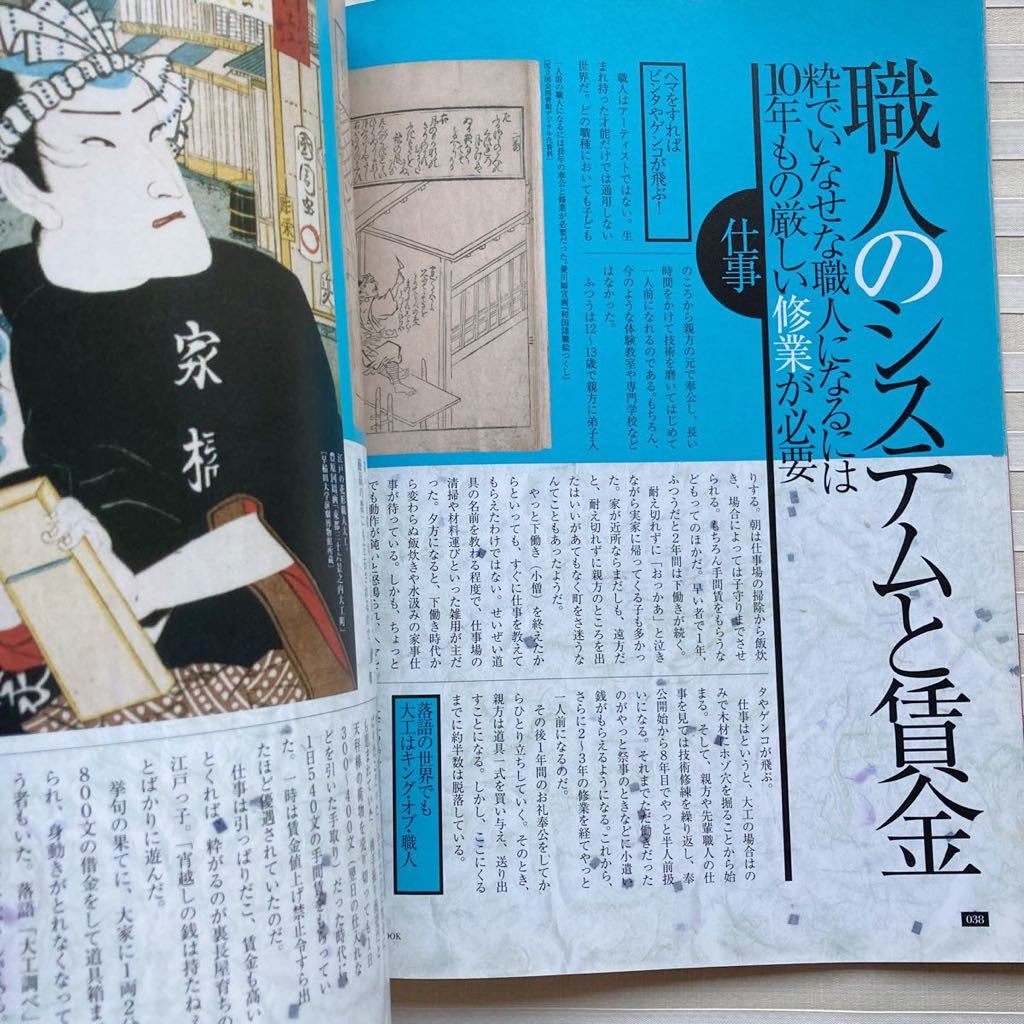 職人のシステムと賃金
粋でいなせな職人になるには
10年もの厳しい修業が必要
仕事
ヘマをすれば
ビンタやゲンコが飛ぶ！
職人はアーティストではない。生
まれ持った才能だけでは通用しない
世界だ。どの職種においても子ども
のころから親方の元で奉公し、長い
時間をかけて技術を磨いてはじめて
一人前になれるのである。もちろん、
今のような体験教室や専門学校など
はなかった。
ふつうは12〜13歳で親方に弟子入
りする。朝は仕事場の掃除から飯炊
き、場合によっては子守りまでさせ
られる。もちろん手間賃をもらうな
どもってのほかだ。早い者で1年、
ふつうだと2年間は下働きが続く。
耐え切れずに「おっかあ」と泣き
ながら実家に帰ってくる子も多かっ
た。家が近所ならまだしも、遠方だ
と、耐え切れずに親方のところを出
たはいいがあてもなく町をさ迷うな
んてこともあったようだ。
やっと下働き（小僧）を終えたか
らといっても、すぐに仕事を教えて
もらえたわけではない。せいぜい道
具の名前を教わる程度で、仕事場の
清掃や材料運びといった雑用が主だ
った。夕方になると、下働き時代か
ら変わらぬ飯炊きや水汲みの家事仕
事が待っている。しかも、ちょっと
でも動作が鈍いと怒鳴られ、
タやゲンコが飛ぶ。
仕事はというと、大工の場合はの
みで木材にホゾ穴を掘ることから始
まる。そして、親方や先輩職人の仕
事を見ては技術修練を繰り返し、奉
公開始から8年目でやっと半人前扱
いになる。それまでただ働きだった
のがやっと祭事のときなどに小遣い
銭がもらえるようになる。これから、
さらに2〜3年の修業を経てやっと
一人前になるのだ。
その後1年間のお礼奉公をしてか
らひとり立ちしていく。そのとき、
親方は道具一式を買い与え、送り出
すことになる。しかし、ここにくる
までに約半数は脱落している。
落語の世界でも
大工はキング・オブ・職人
一人前の職人になるには長年の奉公と修業が必要だった。菱川師宣画『和国諸職絵つくし』
［国立国会図書館デジタル化資料］
038
OOK
家
江戸の花形職人大工。
豊原国周画「東都三十六景之内大工町」
［早稲田大学演劇博物館所蔵］
300〜400文（翌日の仕入れな
どを引いた手取り）だった時代に、
1日540文の手間賃をとってい
た。一時は賃金値上げ禁止令すら出
たほど優遇されていたのだ。
仕事は引っぱりだこ、賃金も高い
とくれば、粋がるのが裏長屋育ちの
江戸っ子。「宵越しの銭は持たねぇ
とばかりに遊んだ。
挙句の果てに、大家に1両2分
800文の借金をして道具箱ま
られ、身動きがとれなくなって
う者もいた。落語「大工調べ」